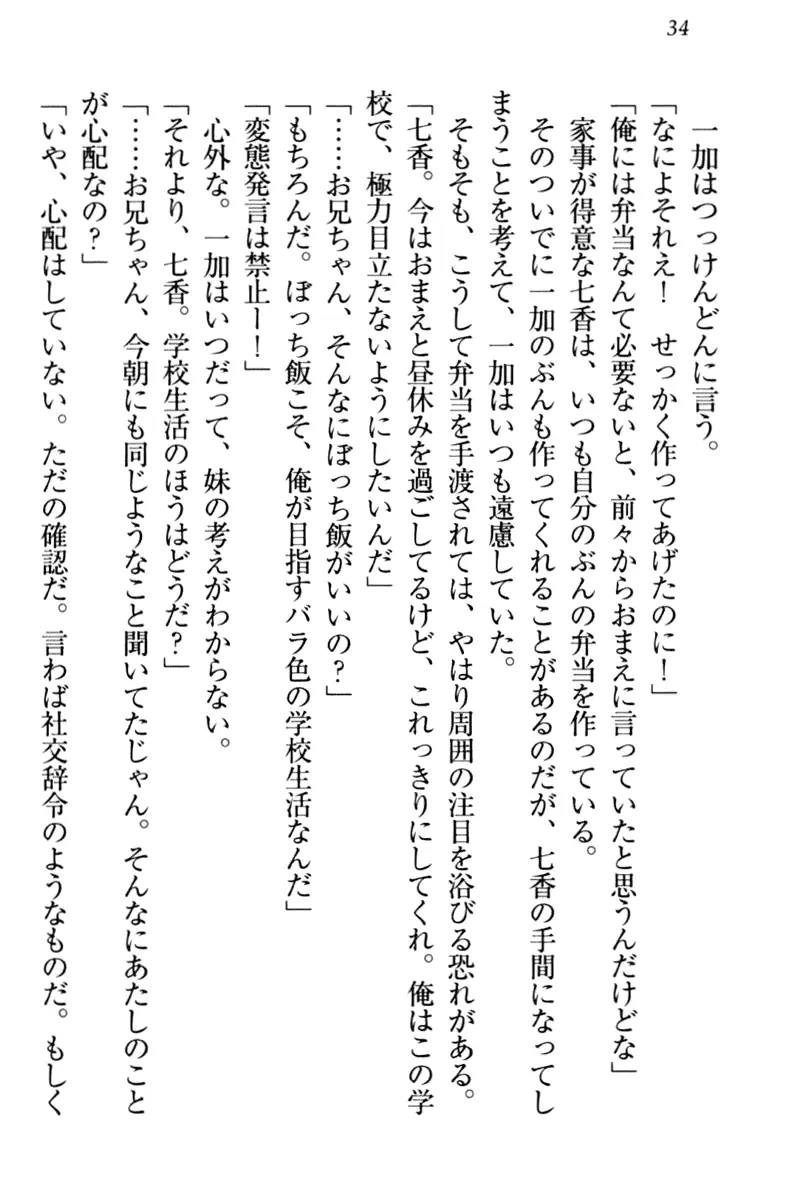 34
一加はつっけんどんに言う。
「なによそれえ！　せっかく作ってあげたのに！」
「俺には弁当なんて必要ないと、前々からおまえに言っていたと思うんだけどな」
家事が得意な七香は、いつも自分のぶんの弁当を作っている。
そのついでに一加のぶんも作ってくれることがあるのだが、七香の手間になってし
まうことを考えて、一加はいつも遠慮していた。
そもそも、こうして弁当を手渡されては、やはり周囲の注目を浴びる恐れがある。
「七香。今はおまえと昼休みを過ごしてるけど、これっきりにしてくれ。俺はこの学
校で、極力目立たないようにしたいんだ」
「……お兄ちゃん、そんなにぼっち飯がいいの？」
「もちろんだ。ぼっち飯こそ、俺が目指すバラ色の学校生活なんだ」
「変態発言は禁止ー！」
心外な。一加はいつだって、妹の考えがわからない。
「それより、七香。学校生活のほうはどうだ？」
「……お兄ちゃん、今朝にも同じようなこと聞いてたじゃん。そんなにあたしのこと
が心配なの？」
「いや、心配はしていない。ただの確認だ。言わば社交辞令のようなものだ。もしく